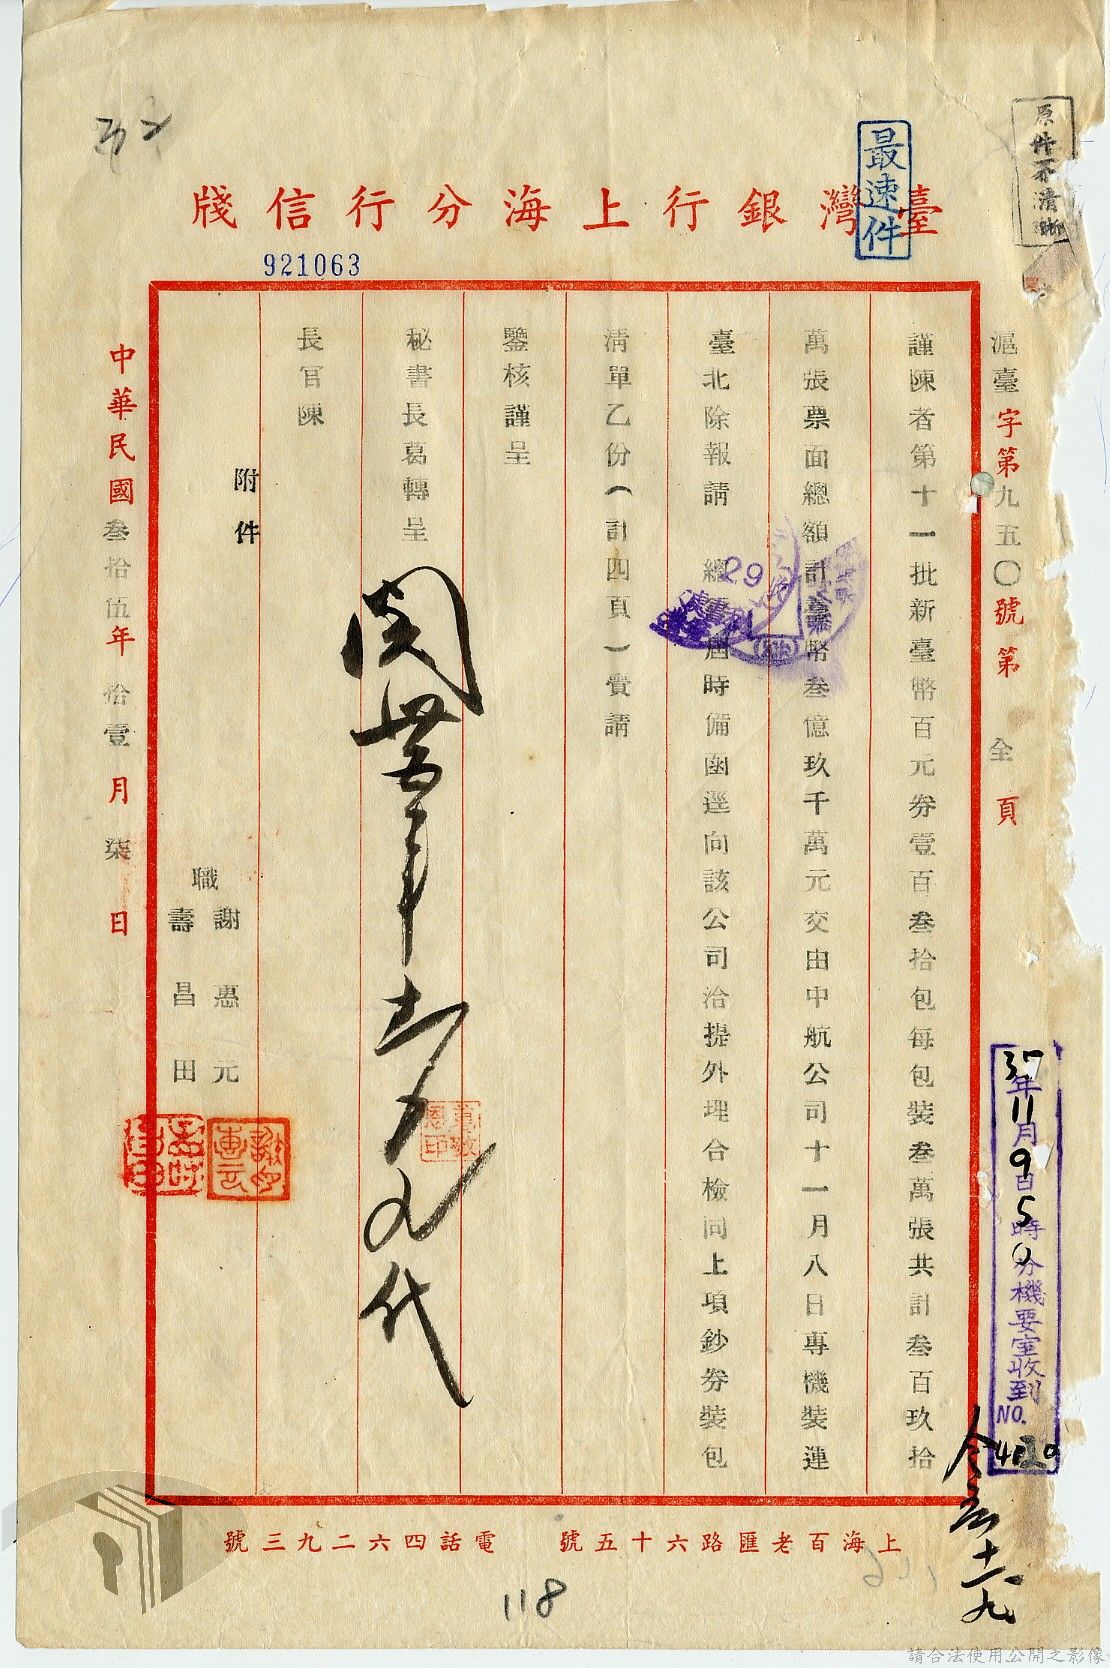 最速件
原件不清晰
臺灣銀行上海分行信牋
921063
滬臺字第九五〇號第全頁
謹陳者第十一批新臺幣百元券壹百叁拾包每包裝叁萬張共計叁百玖拾
萬張票面總額計臺幣叁億玖千萬元交由中航公司十一月八日專機裝運
臺北除報請 總 屆時備函逕向該公司洽提外理合檢同上項鈔券裝包
清單乙份（計四頁）賫請
鑒核謹呈
秘書長葛轉呈
長官陳
附件
職謝惠元
壽昌田
中華民國叁拾伍年拾壹月柒日
29
年11月9日5時分機要室收到
NO.
十一、九
上海百老匯路六十五號 電話四六二九三號
118
請合法使用公開之影像